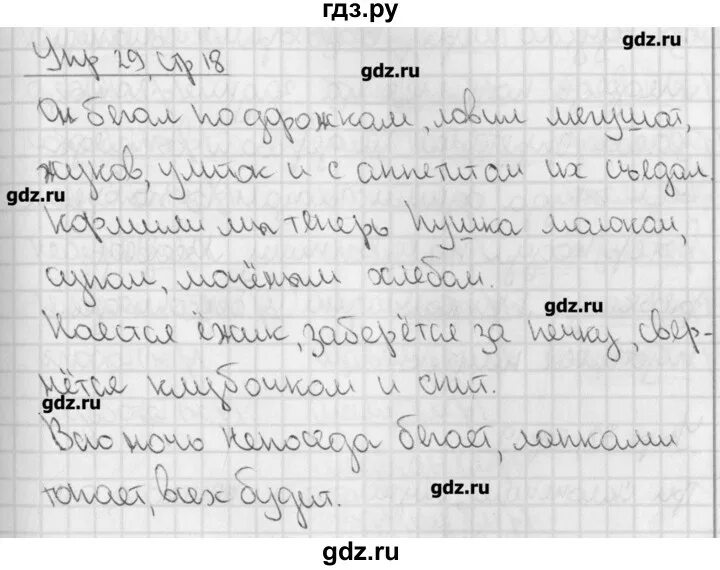 гдз.ру
Упр 29, стр 18
gdz.ru
gdz.ru
Он бегал по дорожкам, ловил лягушат,
жуков, улиток и с аппетитом их съедал.
gdz.ru
Кормили мы теперь Пушка молоком,
супом, мочёным хлебом.
gdz.ru
Наестся ёжик, заберётся за печку, свер-
нётся клубочком и спит.
gdz.ru
Всю ночь непоседа бегает, лапками
топает, всех будит.
gdz.ru
gdz.ru